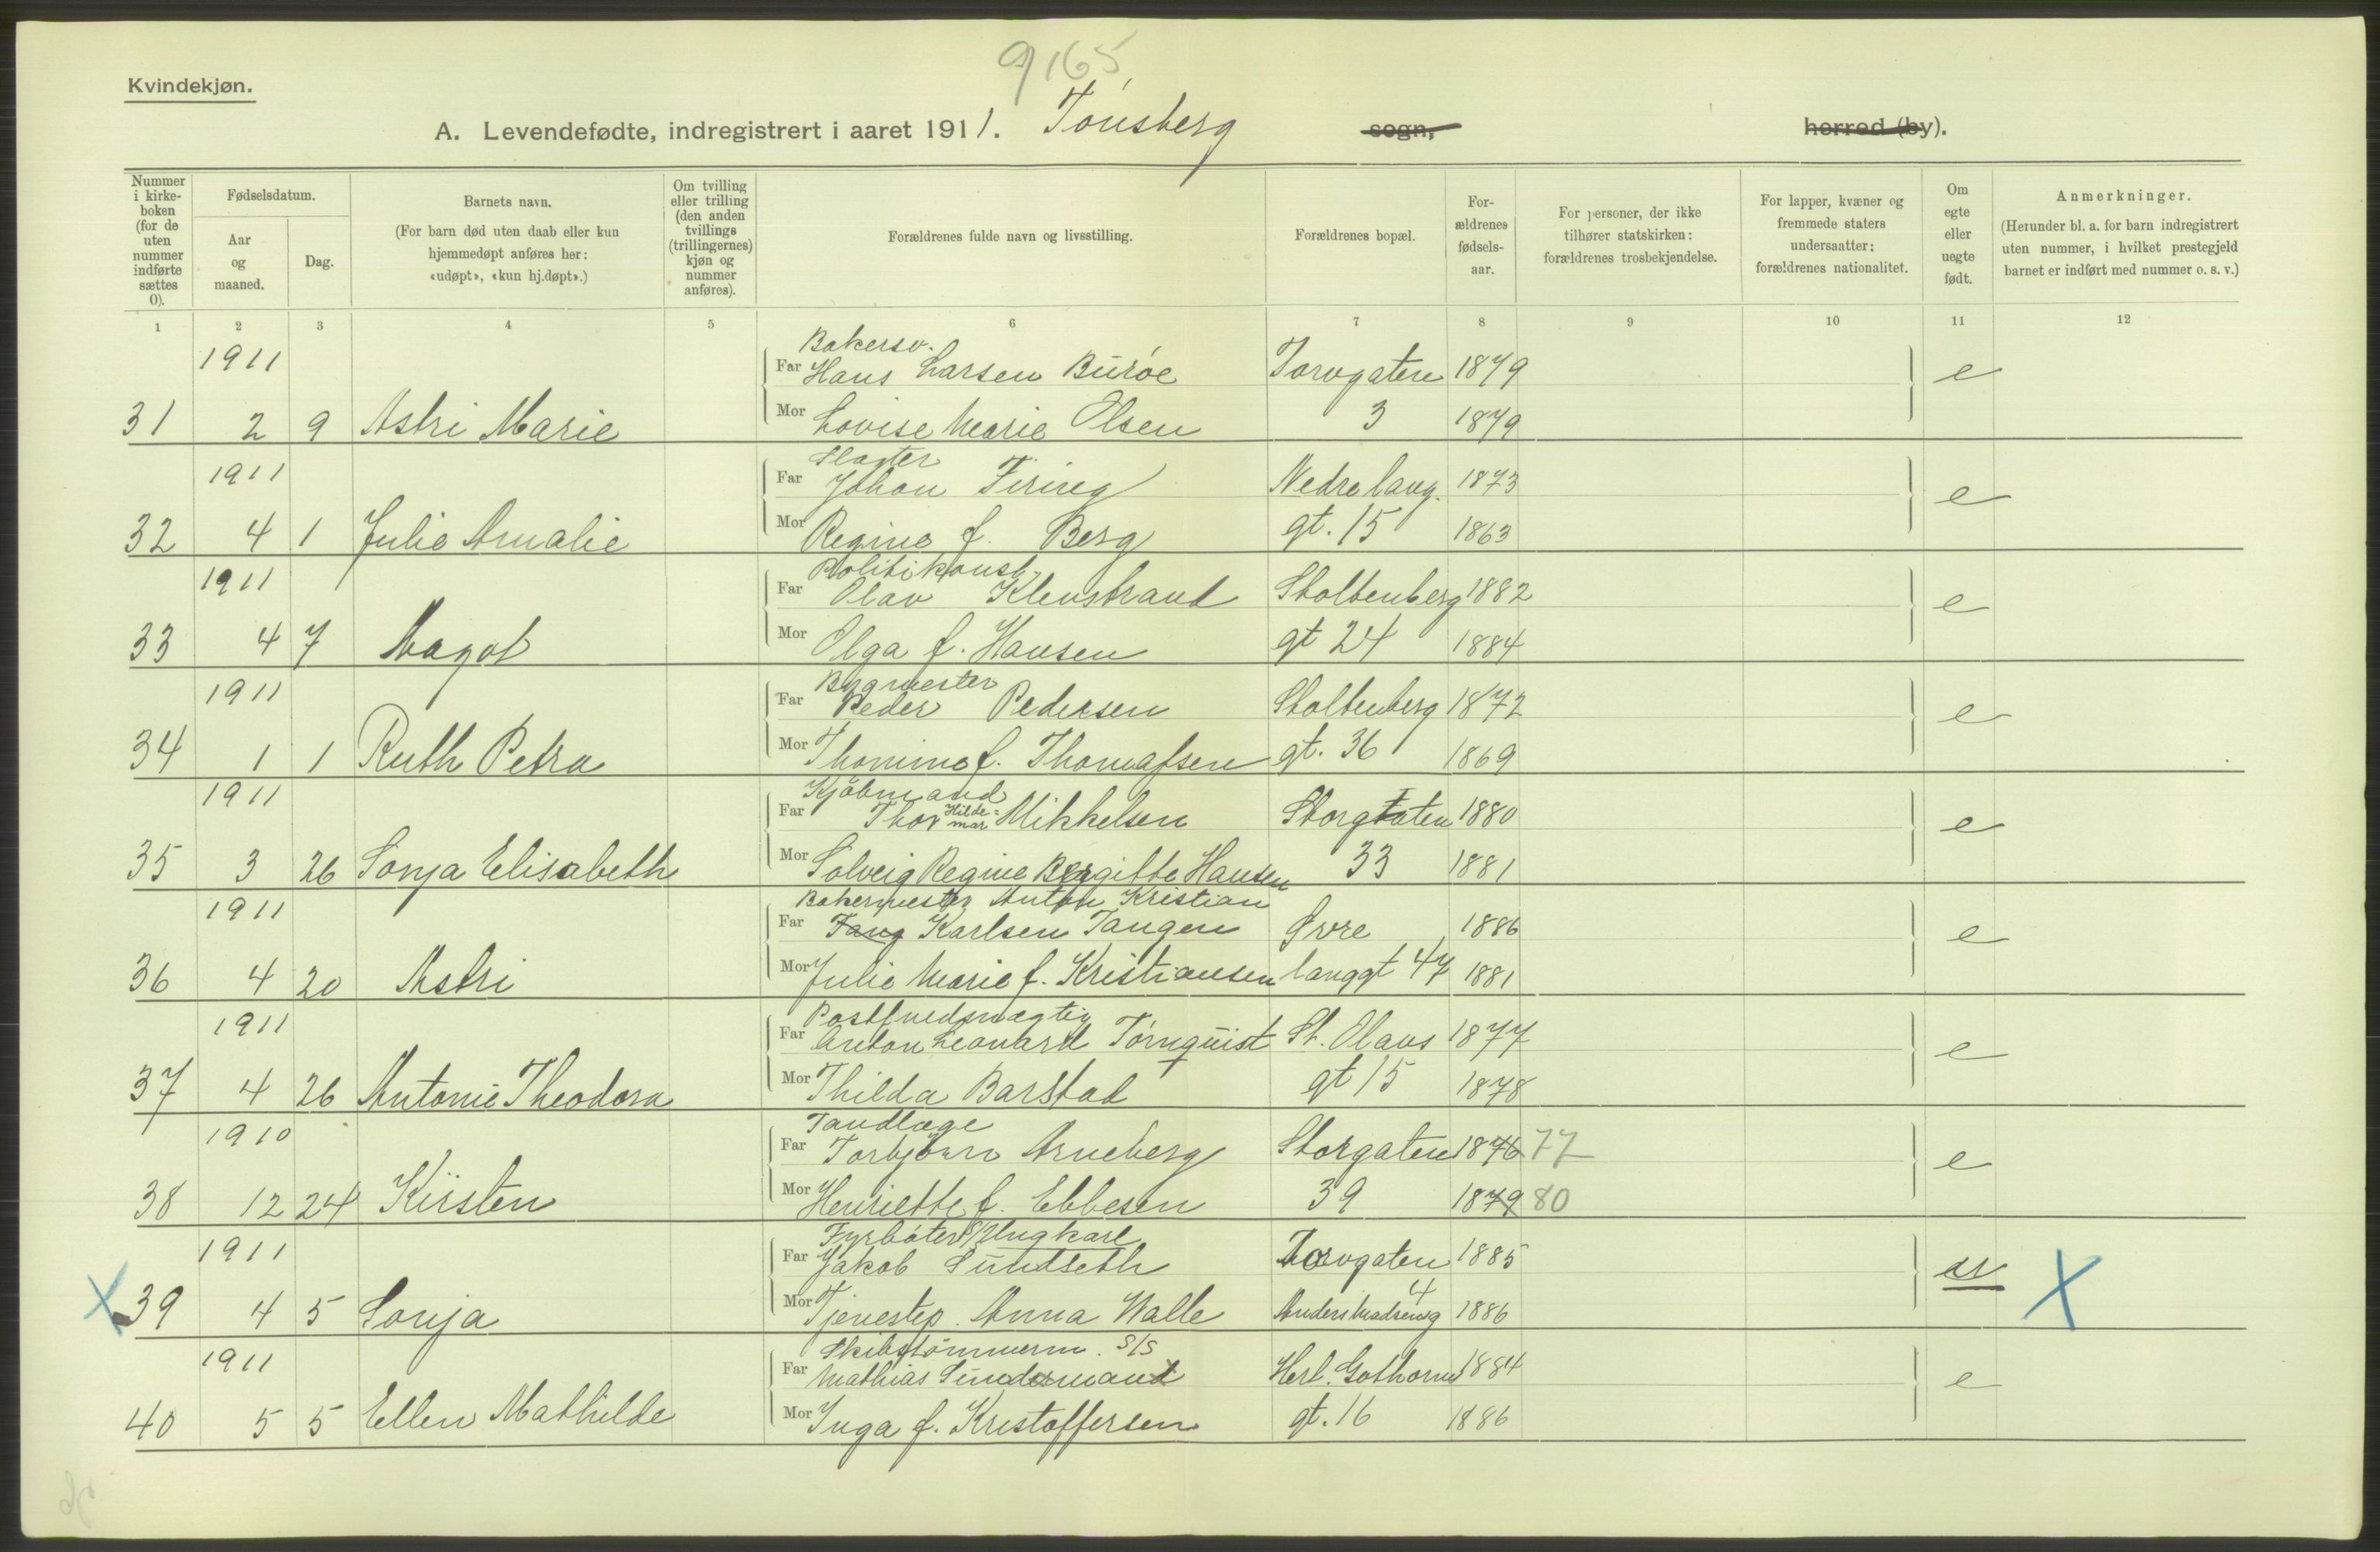 9165
Kvindekjøn.
A. Levendefødte, indregistrert i aaret 1911. Tønsberg sogn, herred (by).
Nummer i kirke-boken (for de uten nummer indførte sættes 0).
Fødselsdatum.
Aar og maaned.
Dag.
Barnets navn.
(For barn død uten daab eller kun hjemmedøpt anføres her: «udøpt», «kun hj.døpt».)
Om tvilling eller trilling (den anden tvillings (trillingernes) kjøn og nummer anføres).
Forældrenes fulde navn og livsstilling.
Forældrenes bopæl.
For-ældrenes fødsels-aar.
For personer, der ikke tilhører statskirken: forældrenes trosbekjendelse.
For lapper, kvæner og fremmede staters undersaatter: forældrenes nationalitet.
Om egte eller uegte født.
Anmerkninger.
(Herunder bl. a. for barn indregistrert uten nummer, i hvilket prestegjeld barnet er indført med nummer o. s. v.)
1 2 3 4 5 6 7 8 9 10 11 12
Bakersv.
1911 Far Hans Larsen Burøe Torvgaten 1879 e
31 2 9 Astri Marie Mor Lovise Marie Olsen 3 1879
Slagter
1911 Far Johan Firing Nedre lang. 1873 e
32 4 1 Julie Amalie Mor Regine f. Berg gt. 15 1863
Politikonst.
1911 Far Olav Klenstrand Stoltenberg 1882 e
33 4 7 Magot Mor Olga f. Hansen gt 24 1884
Bygmester
1911 Far Peder Pedersen Stoltenberg 1872 e
34 1 1 Ruth Petra Mor Thomine f. Thomassen gt. 36 1869
Kjøbmand
1911 Far Thor Hilde=mar Mikkelsen Storgaten 1880 e
35 3 26 Sonja Elisabeth Mor Solveig Regine Bergitte Hansen 33 1881
Bakermester Anton Kristian
1911 Far Tang Karlsen Tangen Øvre 1886 e
36 4 20 Astri Mor Julie Marie f. Kristiansen langgt 47 1881
Postfuldmægtig
1911 Far Anton Leonard Tørnquist St. Olavs 1877 e
37 4 26 Antonie Theodora Mor Thilda Barstad gt 15 1878
Tandlæge
1910 Far Torbjørn Arneberg Storgaten 1876 77 e
38 12 24 Kirsten Mor Henriette f. Ebbesen 39 1879 80
Fyrbøter Ungkarl
1911 Far Jakob Sundseth Torvgaten 1885 X
4
X 39 4 5 Sonja Mor Tjenestep. Anna Walle Anders Madsensg 1886
Skibstømmerm. S/S
1911 Far Mathias Sundermand Herl. Gothorms 1884 e
40 5 5 Ellen Mathilde Mor Inga f. Kristoffersen gt. 16 1886